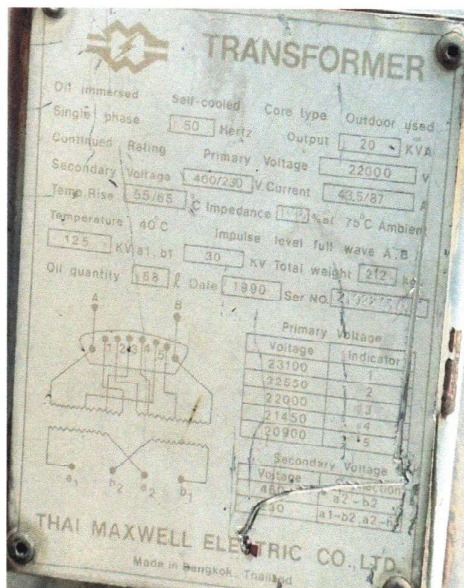 TRANSFORMER
Oil immersed Self-cooled Core type Outdoor used
Single phase 50 Hertz Output 20 KVA
Continued Rating Primary Voltage 22000 V
Secondary Voltage 460/230 V. Current 43.5/87 A
Temp. Rise 55/65 °C Impedance % at 75°C Ambient
Temperature 40°C Impulse level full wave A,B
125 KV a1, b1 30 KV Total weight 212 kg
Oil quantity 58 ℓ Date 1990 Ser NO.
A B
1 2 3 4 5
a1 b2 a2 b1
Primary Voltage
Voltage Indicator
23100 1
22550 2
22000 3
21450 4
20900 5
Secondary Voltage
Voltage
a2-b2
230 a1-b2, a2-b1
THAI MAXWELL ELECTRIC CO., LTD.
Made in Bangkok, Thailand